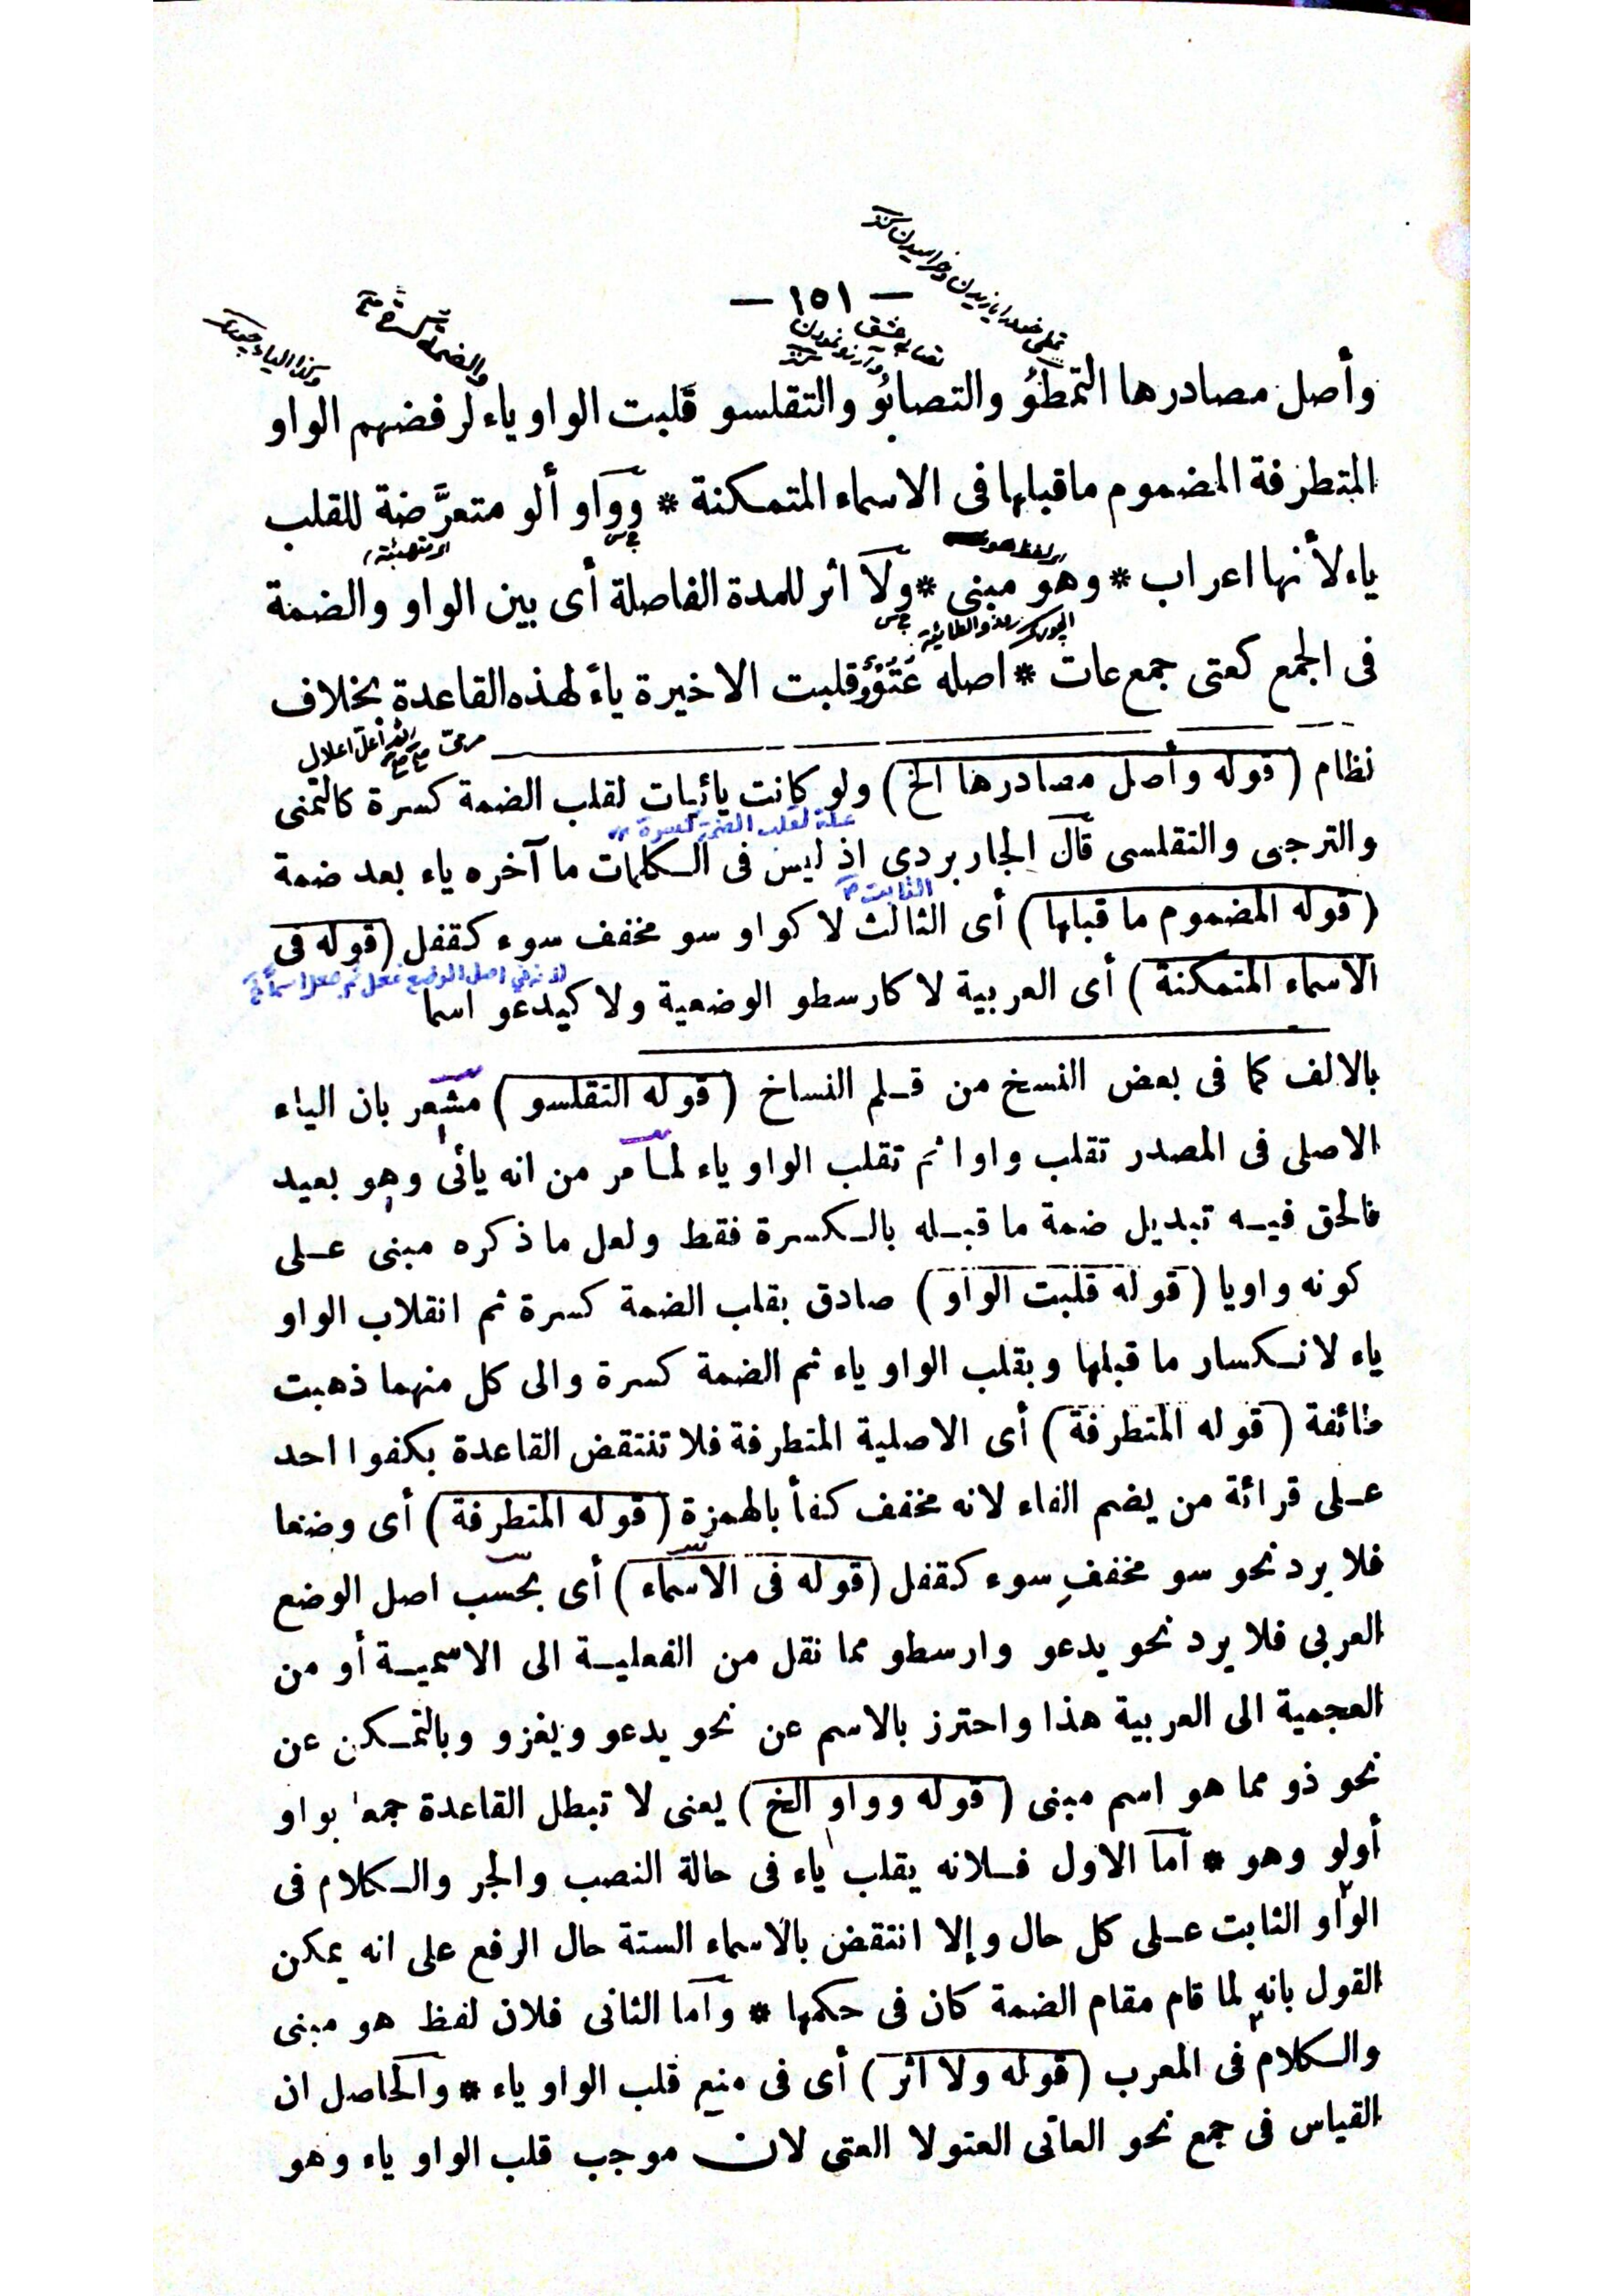 — ١٥١ —
وأصل مصادرها التمطوُ والتصابوُ والتقلسو قلبت الواو ياء لرفضهم الواو
المتطرفة المضموم ماقبلها فى الاسماء المتمكنة * وواو ألو متعرَّضة للقلب
ياء لأنها اعراب * وهو مبنى * ولا اثر للمدة الفاصلة أى بين الواو والضمة
فى الجمع كعتى جمع عات * اصله عُتُوْوٌ قلبت الاخيرة ياءً لهذه القاعدة بخلاف
نظام (قوله وأصل مصادرها الخ) ولو كانت يائيات لقلب الضمة كسرة كالتمنى
علة لقلب الضمة كسرة
والترجى والتقلسى قال الجاربردى اذ ليس فى الكلمات ما آخره ياء بعد ضمة
الثابت
(قوله المضموم ما قبلها) أى الثالث لا كواو سو مخفف سوء كقفل (قوله فى
الاسماء المتمكنة) أى العربية لا كارسطو الوضعية ولا كيدعو اسما
بالالف كما فى بعض النسخ من قلم النساخ (قوله التقلسو) مشعر بان الياء
الاصلى فى المصدر تقلب واوا ثم تقلب الواو ياء لما مر من انه يائى وهو بعيد
فالحق فيه تبديل ضمة ما قبله بالكسرة فقط ولعل ما ذكره مبنى على
كونه واويا (قوله قلبت الواو) صادق بقلب الضمة كسرة ثم انقلاب الواو
ياء لانكسار ما قبلها وبقلب الواو ياء ثم الضمة كسرة والى كل منهما ذهبت
طائفة (قوله المتطرفة) أى الاصلية المتطرفة فلا تنتقض القاعدة بكفوا احد
على قرائة من يضم الفاء لانه مخفف كفأ بالهمزة (قوله المتطرفة) أى وضعا
فلا يرد نحو سو مخفف سوء كقفل (قوله فى الاسماء) أى بحسب اصل الوضع
العربى فلا يرد نحو يدعو وارسطو مما نقل من الفعلية الى الاسمية أو من
العجمية الى العربية هذا واحترز بالاسم عن نحو يدعو ويغزو وبالتمكن عن
نحو ذو مما هو اسم مبنى (قوله وواو الخ) يعنى لا تبطل القاعدة جمعا بواو
أولو وهو * اما الاول فلانه يقلب ياء فى حالة النصب والجر والكلام فى
الواو الثابت على كل حال وإلا انتقض بالاسماء الستة حال الرفع على انه يمكن
القول بانه لما قام مقام الضمة كان فى حكمها * واما الثانى فلان لفظ هو مبنى
والكلام فى المعرب (قوله ولا اثر) أى فى منع قلب الواو ياء * والحاصل ان
القياس فى جمع نحو العاتى العتو لا العتى لان موجب قلب الواو ياء وهو